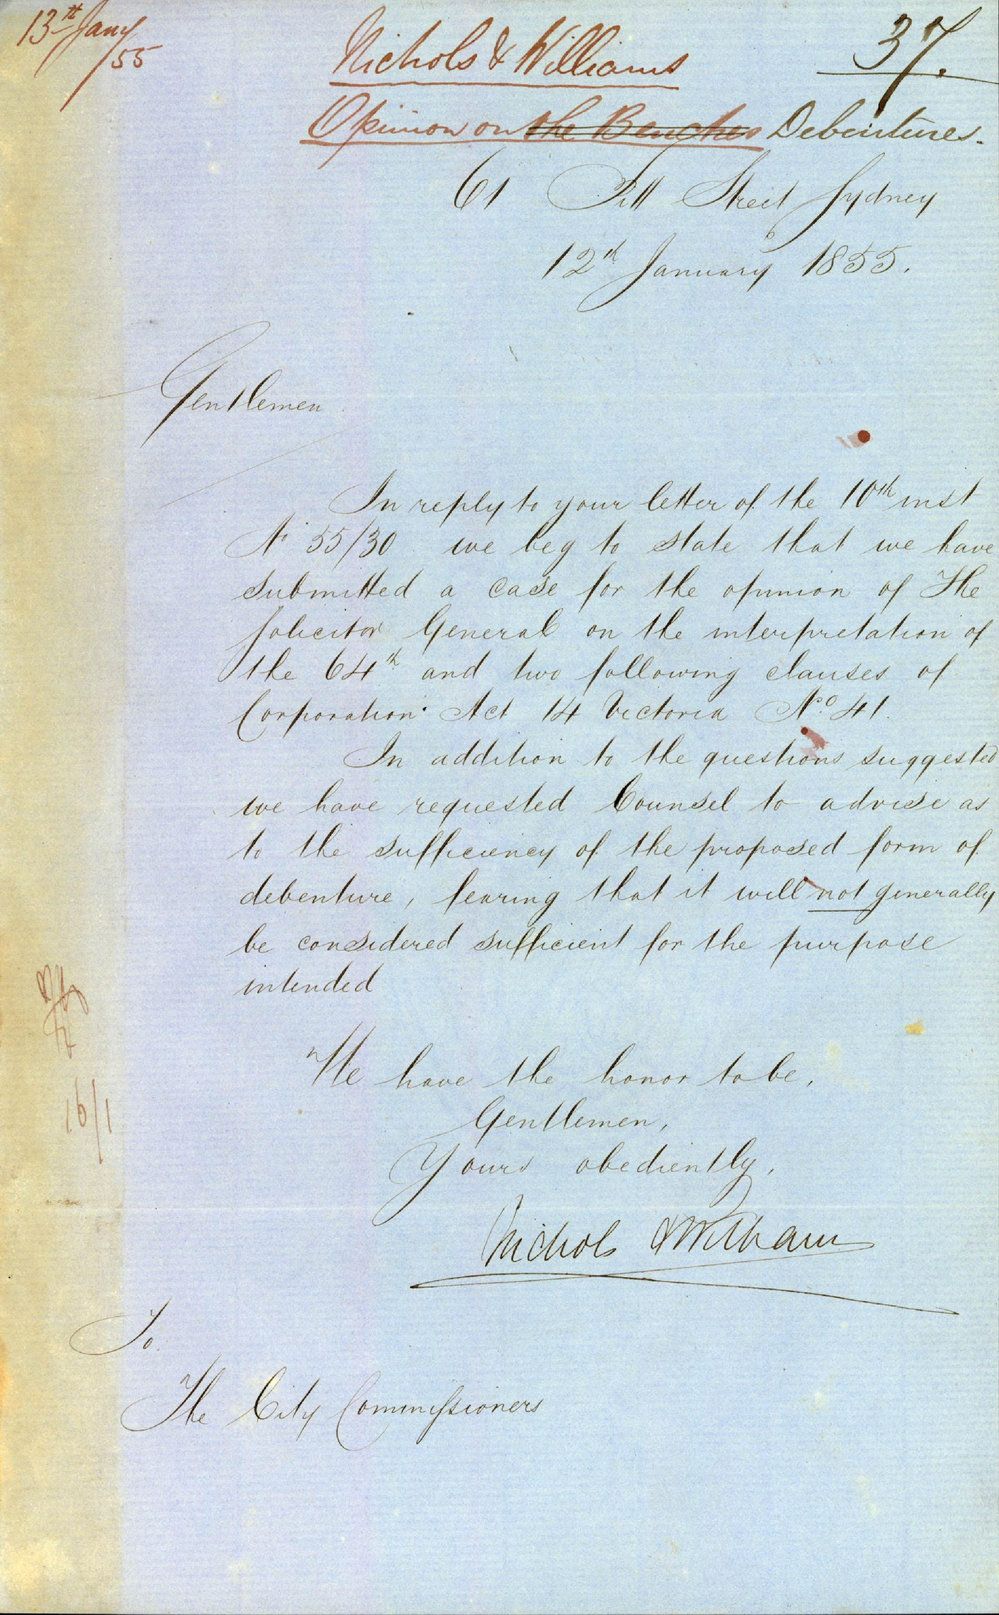 13th Jany
/55
37.
Nichols & Williams
Opinion on the Benches Debentures.
61 Pitt Street Sydney
12th January 1855.
Gentlemen
In reply to your letter of the 10th inst
No 55/30 we beg to state that we have
submitted a case for the opinion of The
Solicitor General on the interpretation of
the 64th and two following clauses of
Corporation Act 14 Victoria No. 41.
In addition to the questions suggested
we have requested Counsel to advise as
to the sufficiency of the proposed form of
debenture, fearing that it will not generally
be considered sufficient for the purpose
intended
We have the honor to be,
Gentlemen,
Yours obediently,
Nichols & Williams
16/1
To
The City Commissioners